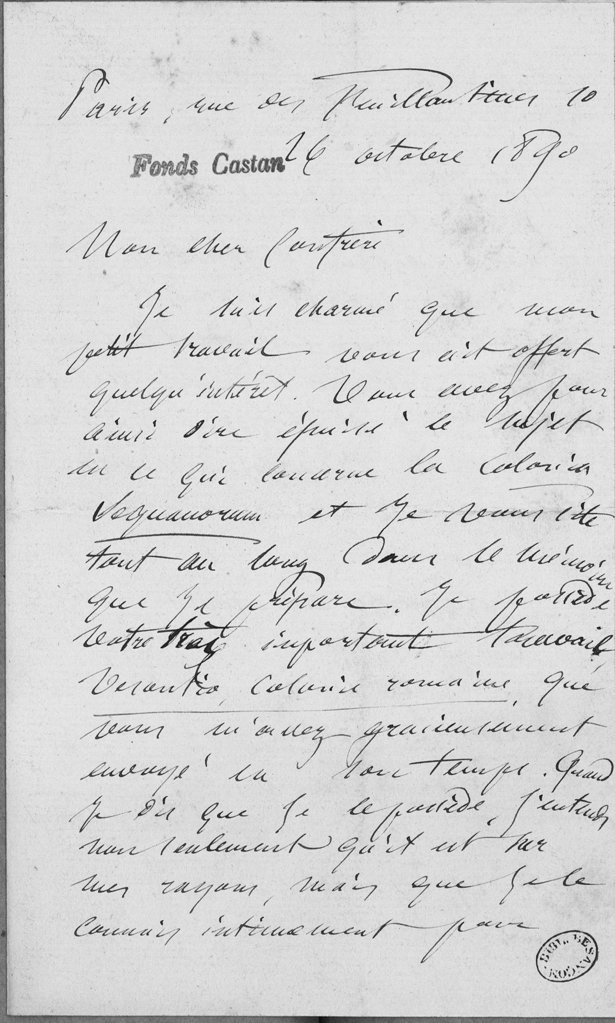 Paris, rue des Feuillantines 10
Fonds Castan
26 octobre 1890
Mon cher Confrère
Je suis charmé que mon
petit travail vous ait offert
quelqu'intérêt. Vous avez pour
ainsi dire épuisé le sujet
en ce qui concerne la Colonia
Sequanorum et je vous cite
tout au long dans le mémoire
que je prépare. Je possède
votre très important travail
Vesontio, colonie romaine, que
vous m'avez gracieusement
envoyé en son temps. Quand
je dis que je le possède, j'entends
non seulement qu'il est sur
mes rayons, mais que je le
connais intimement pour
BIBL. BESANÇON